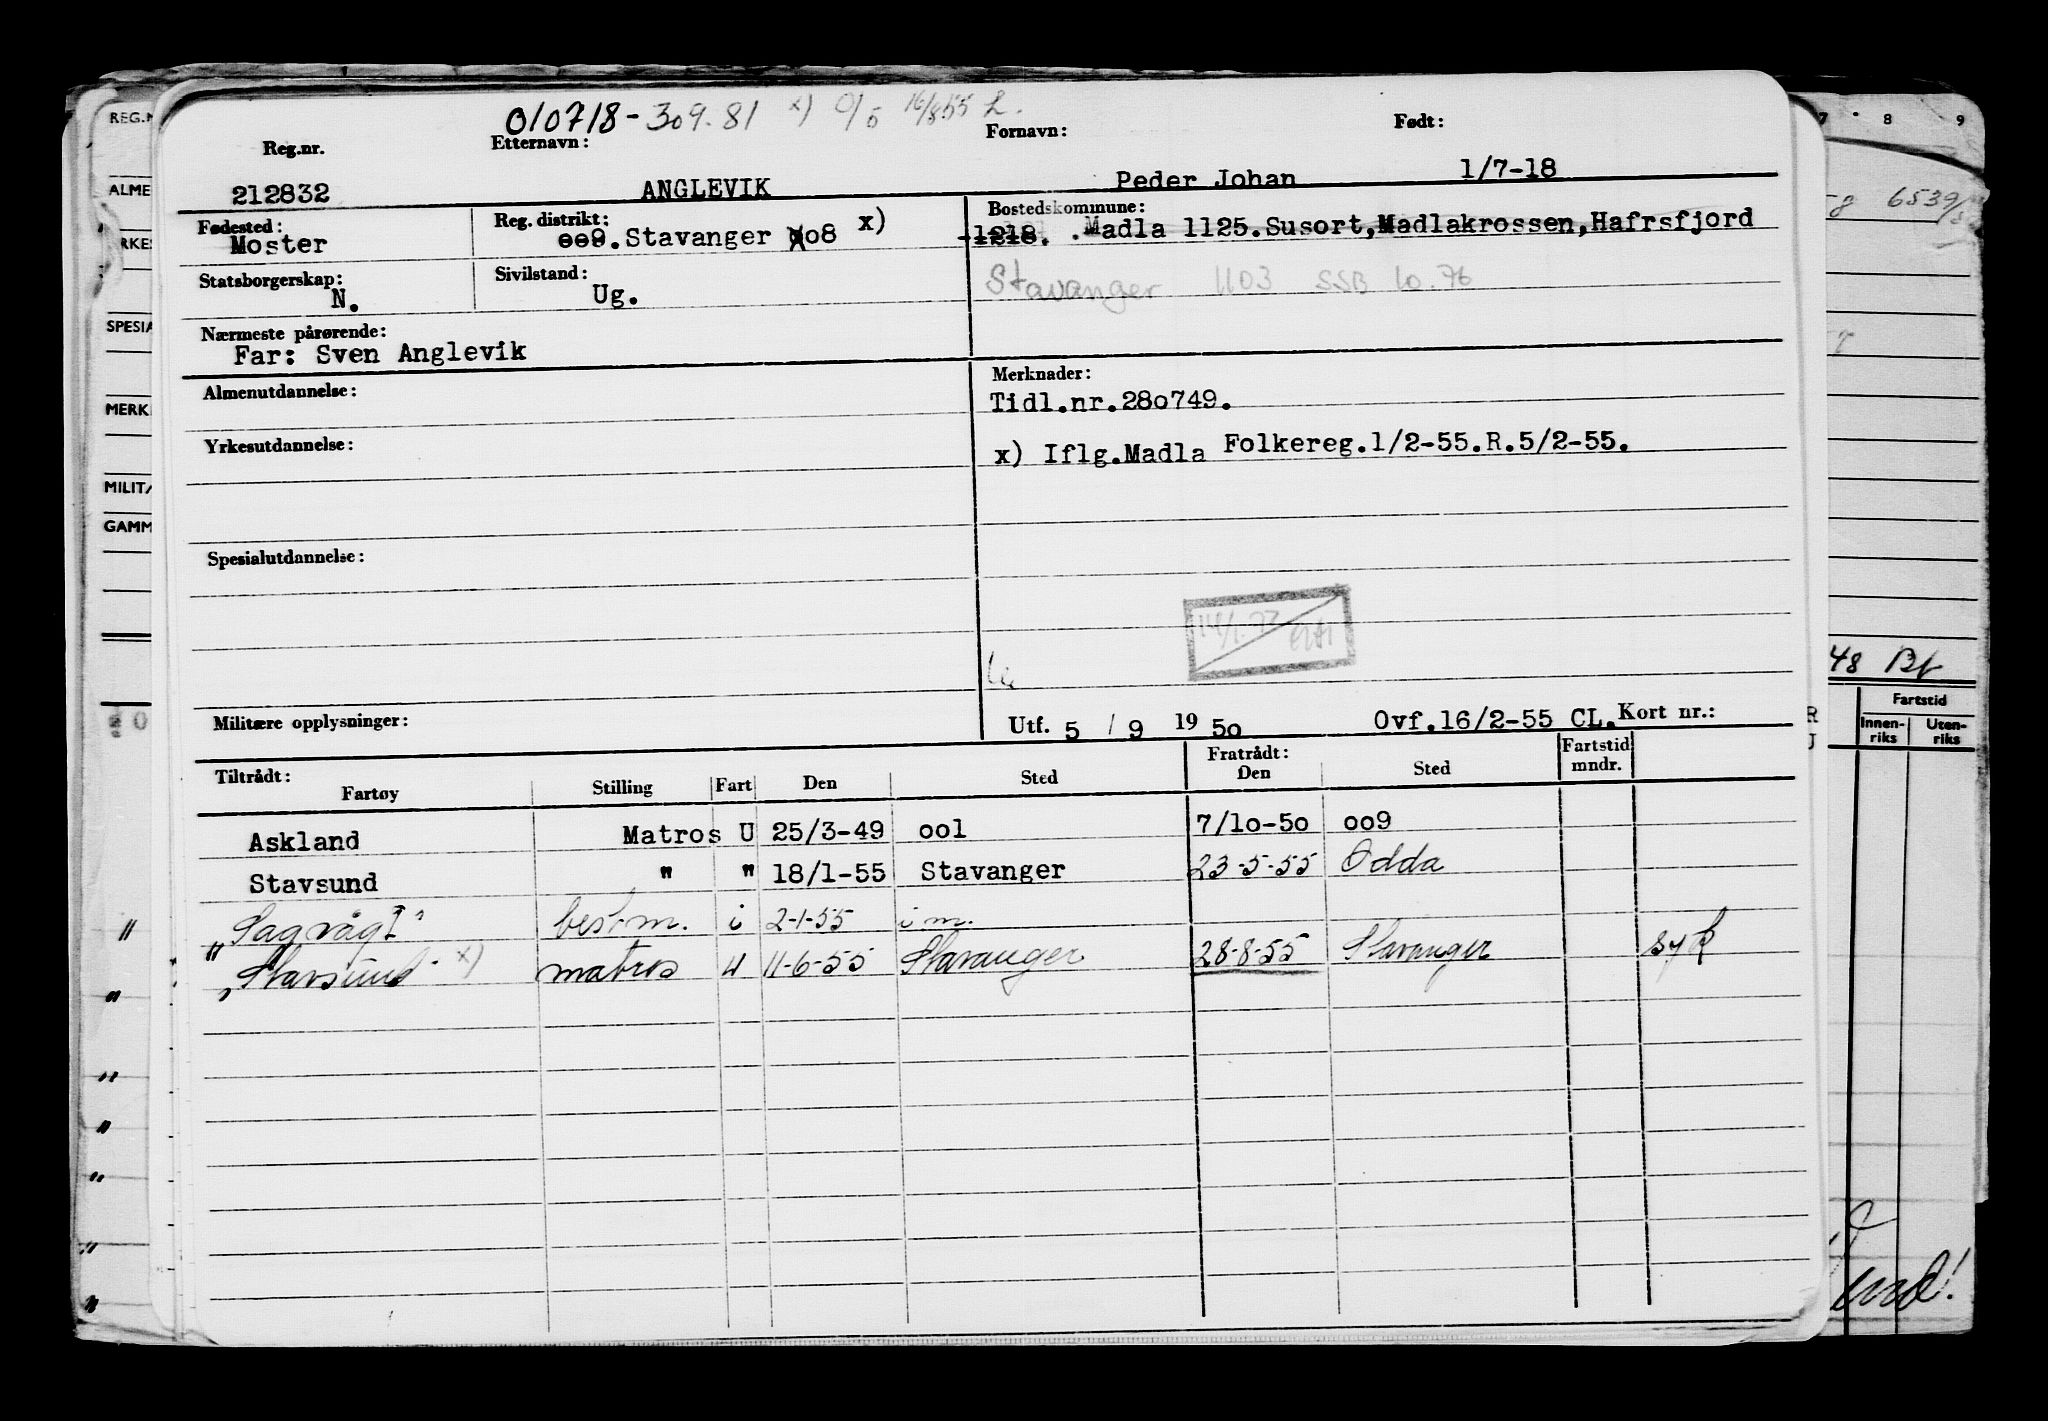 010718-309.81 x) 0/5 16/8 55 L.
Reg.nr. Etternavn: Fornavn: Født:
212832 ANGLEVIK Peder Johan 1/7-18
Fødested: Reg. distrikt: Bostedskommune:
Moster 009.Stavanger Xo8 x) 1218. .Madla 1125.Susort,Madlakrossen,Hafrsfjord
Statsborgerskap: Sivilstand: Stavanger 1103 SSB 10.76
N. Ug.
Nærmeste pårørende:
Far: Sven Anglevik
Almenutdannelse: Merknader:
Tidl.nr.280749.
Yrkesutdannelse:
x) Iflg.Madla Folkereg.1/2-55.R.5/2-55.
Spesialutdannelse:
Militære opplysninger: Utf. 5 / 9 19 50 Ovf.16/2-55 CL. Kort nr.:
Tiltrådt: Fratrådt: Fartstid
Fartøy Stilling Fart Den Sted Den Sted mndr.
Askland Matros U 25/3-49 001 7/10-50 009
Stavsund " " 18/1-55 Stavanger 23-5-55 Odda
"Sagvåg I" best.m. i 2-1-55 i m.
"Stavsund" x) matros u 11-6-55 Stavanger 28-8-55 Stavanger syk
REG.N
ALME
YRKES
SPESIA
MERK
MILITÆ
GAMM
7 8 9
6539/
48 Bf
Fartstid
Innen-riks Uten-riks